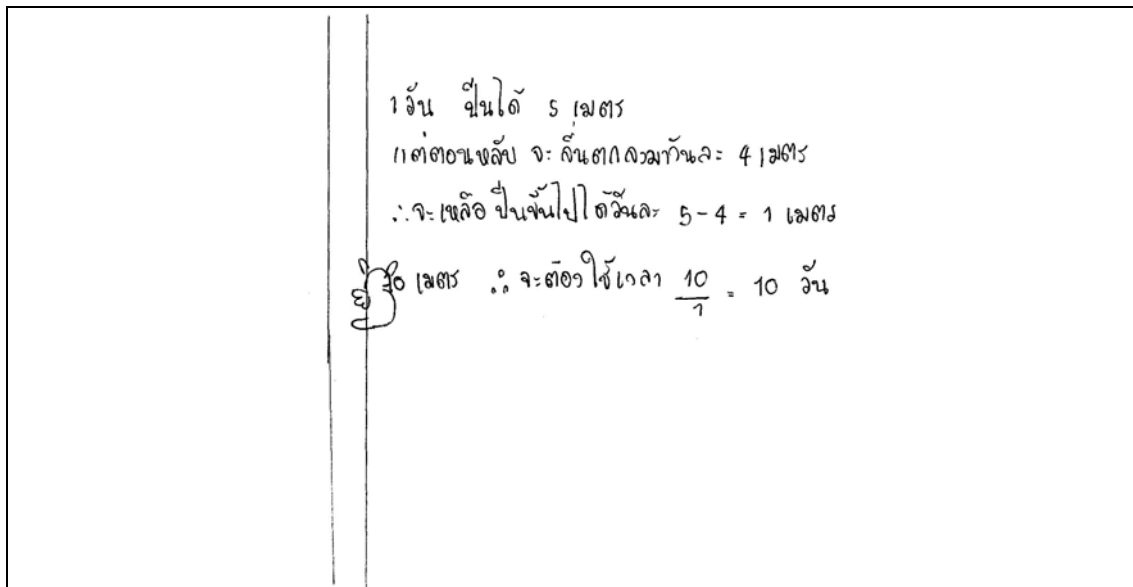 1 วัน ปีนได้ 5 เมตร
แต่ตอนหลับ จะลื่นตกลงมาวันละ 4 เมตร
∴ จะเหลือ ปีนขึ้นไปได้วันละ 5 - 4 = 1 เมตร
10 เมตร ∴ จะต้องใช้เวลา 10/1 = 10 วัน